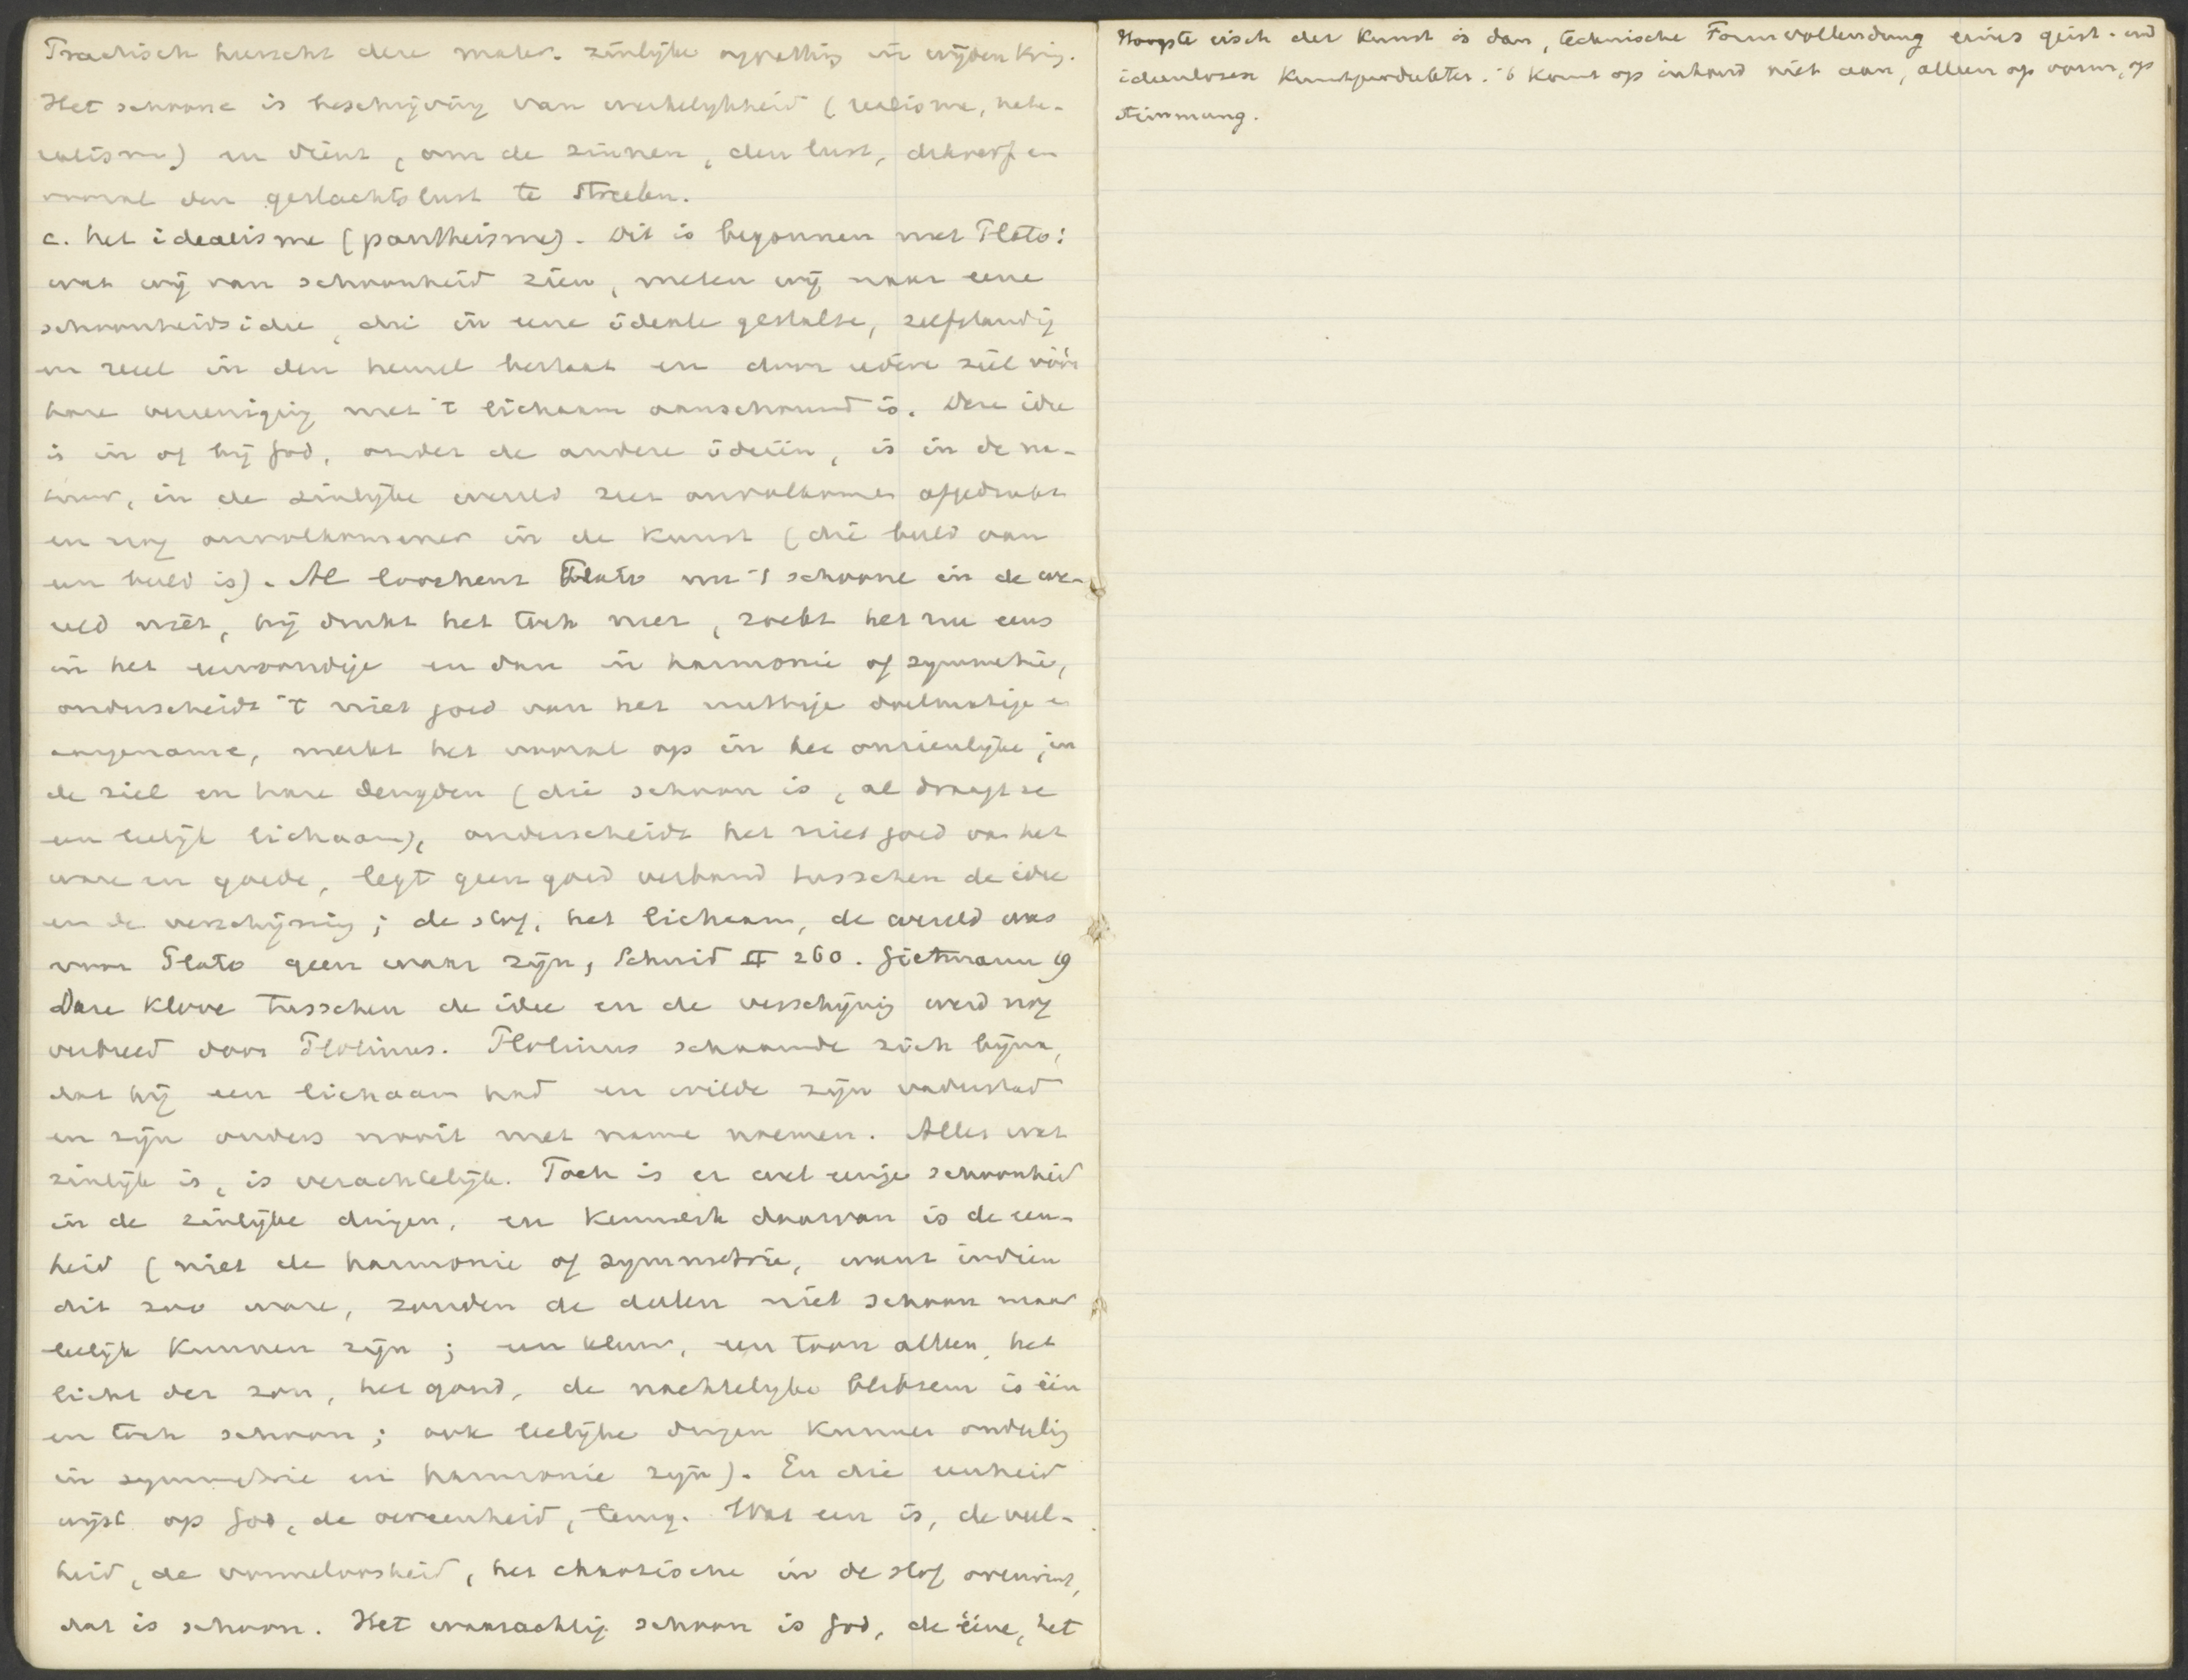 Practisch heerscht deze mater. zinlijke opvatting in wijden kring.
Het schoone is beschrijving van werkelijkheid (realisme, natu-
ralisme) en dient, om de zinnen, den lust, en
vooral den geslachtslust te streelen.
c. het idealisme (pantheisme). Dit is begonnen met Plato:
wat wij van schoonheid zien, meten wij naar eene
schoonheidsidee, die in eene ideale gestalte, zelfstandig
en reëel in den hemel bestaat en door iedere ziel vóór
hare vereeniging met 't lichaam aanschouwd is. Deze idee
is in of bij God, onder de andere ideeën, is in de na-
tuur, in de zinlijke wereld zeer onvolkomen afgedrukt
en nog onvolkomener in de kunst (die beeld van
een beeld is). Al loochent Plato nu 't schoone in de we-
reld niet, hij drukt het toch neer, zoekt het nu eens
in het eenvoudige en dan in harmonie of symmetrie,
onderscheidt 't niet goed van het nuttige doelmatige en
aangename, merkt het vooral op in het onzienlijke, in
de ziel en hare deugden (die schoon is, al draagt ze
een leelijk lichaam), onderscheidt het niet goed van het
ware en goede, legt geen goed verband tusschen de idee
en de verschijning; de stof, het lichaam, de wereld was
voor Plato geen waar zijn, Schmid II 260. Gietmann 19
Deze klove tusschen de idee en de verschijning werd nog
verbreed door Plotinus. Plotinus schaamde zich bijna,
dat hij een lichaam had en wilde zijn vaderstad
en zijn ouders nooit met name noemen. Alles wat
zinlijk is, is verachtelijk. Toch is er wel eenige schoonheid
in de zinlijke dingen, en kenmerk daarvan is de een-
heid (niet de harmonie of symmetrie, want indien
dit zoo ware, zouden de deelen niet schoon maar
leelijk kunnen zijn; een kleur, een toon alleen, het
licht der zon, het goud, de nachtelijke bliksem is één
en toch schoon; ook leelijke dingen kunnen onderling
in symmetrie en harmonie zijn). En die eenheid
wijst op God, de oereenheid, terug. Wat een is, de veel-
heid, de vormeloosheid, het chaotische in de stof overwint,
dat is schoon. Het waarachtig schoon is God, de ééne, het
Hoogste eisch der Kunst is dan, technische Formvollendung eines geist- und
ideenlosen Kunstproduktes. 't komt op inhoud niet aan, alleen op vorm, op
stimmung.